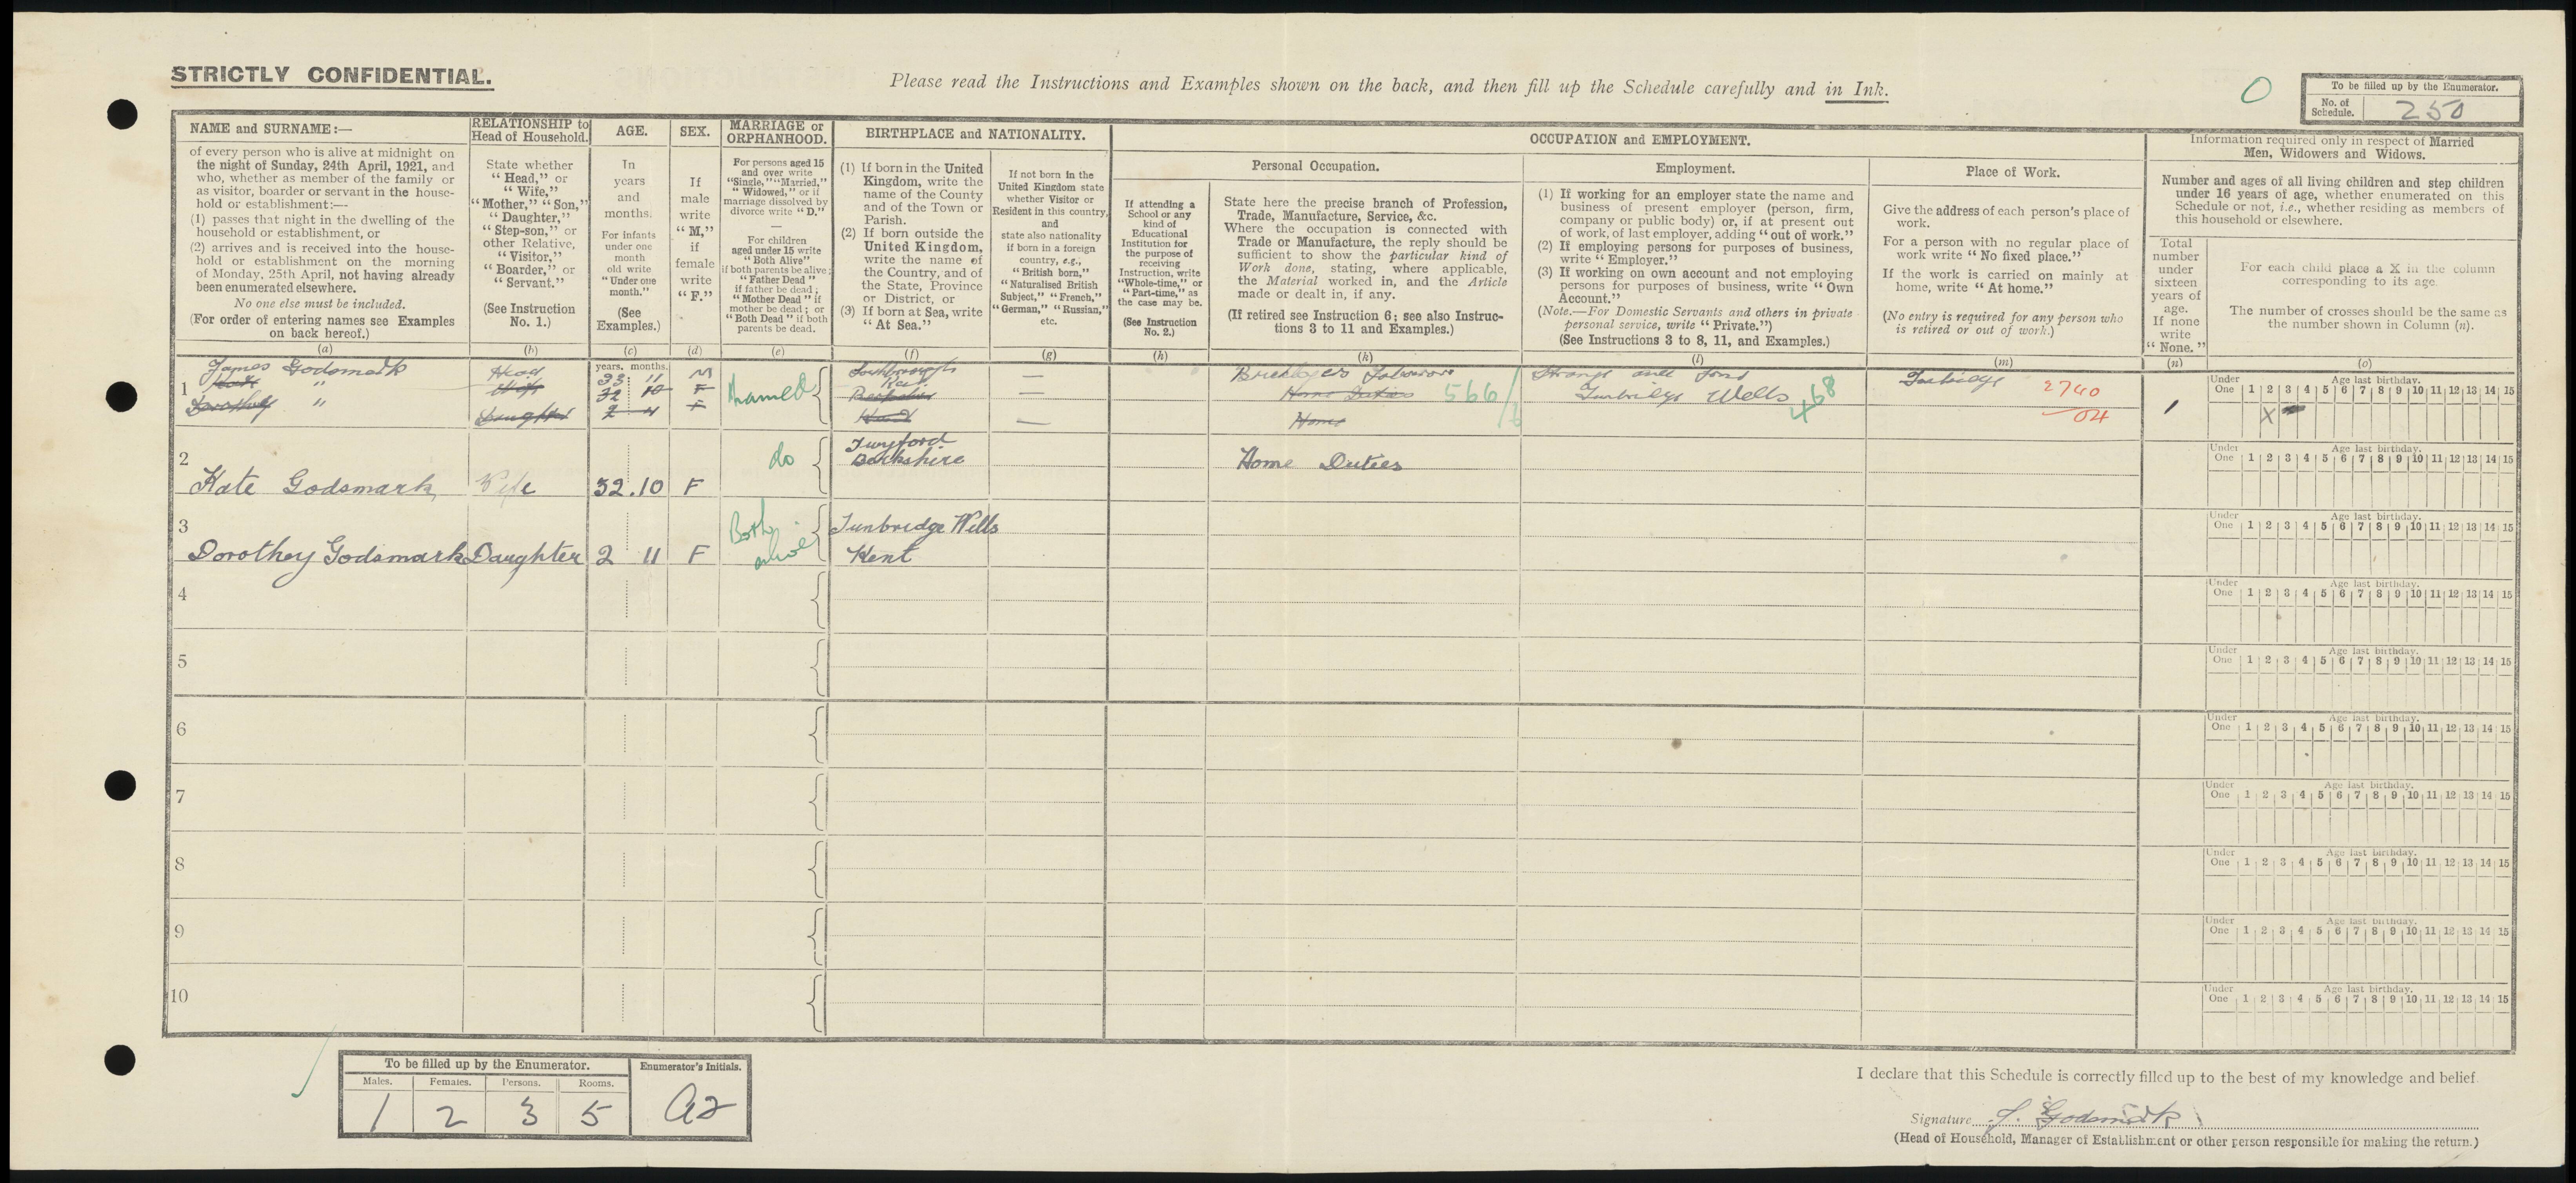 STRICTLY CONFIDENTIAL.
Please read the Instructions and Examples shown on the back, and then fill up the Schedule carefully and in Ink.
0
To be filled up by the Enumerator.
No. of Schedule. 250
NAME and SURNAME:—
of every person who is alive at midnight on
the night of Sunday, 24th April, 1921, and
who, whether as member of the family or
as visitor, boarder or servant in the house-
hold or establishment:—
(1) passes that night in the dwelling of the
household or establishment, or
(2) arrives and is received into the house-
hold or establishment on the morning
of Monday, 25th April, not having already
been enumerated elsewhere.
No one else must be included.
(For order of entering names see Examples
on back hereof.)
(a)
RELATIONSHIP to
Head of Household.
State whether
"Head," or
"Wife,"
"Mother," "Son,"
"Daughter,"
"Step-son," or
other Relative,
"Visitor,"
"Boarder," or
"Servant."
(See Instruction
No. 1.)
(b)
AGE.
In
years
and
months.
For infants
under one
month
old write
"Under one
month."
(See
Examples.)
(c)
SEX.
If
male
write
"M,"
if
female
write
"F."
(d)
MARRIAGE or
ORPHANHOOD.
For persons aged 15
and over write
"Single," "Married,"
"Widowed," or if
marriage dissolved by
divorce write "D."
—
For children
aged under 15 write
"Both Alive"
if both parents be alive;
"Father Dead"
if father be dead;
"Mother Dead" if
mother be dead; or
"Both Dead" if both
parents be dead.
(e)
BIRTHPLACE and NATIONALITY.
(1) If born in the United
Kingdom, write the
name of the County
and of the Town or
Parish.
(2) If born outside the
United Kingdom,
write the name of
the Country, and of
the State, Province
or District, or
(3) If born at Sea, write
"At Sea."
(f)
If not born in the
United Kingdom state
whether Visitor or
Resident in this country,
and
state also nationality
if born in a foreign
country, e.g.,
"British born,"
"Naturalised British
Subject," "French,"
"German," "Russian,"
etc.
(g)
OCCUPATION and EMPLOYMENT.
Personal Occupation.
If attending a
School or any
kind of
Educational
Institution for
the purpose of
receiving
Instruction, write
"Whole-time," or
"Part-time," as
the case may be.
(See Instruction
No. 2.)
(h)
State here the precise branch of Profession,
Trade, Manufacture, Service, &c.
Where the occupation is connected with
Trade or Manufacture, the reply should be
sufficient to show the particular kind of
Work done, stating, where applicable,
the Material worked in, and the Article
made or dealt in, if any.
(If retired see Instruction 6; see also Instruc-
tions 3 to 11 and Examples.)
(k)
Employment.
(1) If working for an employer state the name and
business of present employer (person, firm,
company or public body) or, if at present out
of work, of last employer, adding "out of work."
(2) If employing persons for purposes of business,
write "Employer."
(3) If working on own account and not employing
persons for purposes of business, write "Own
Account."
(Note.—For Domestic Servants and others in private
personal service, write "Private.")
(See Instructions 3 to 8, 11, and Examples.)
(l)
Place of Work.
Give the address of each person's place of
work.
For a person with no regular place of
work write "No fixed place."
If the work is carried on mainly at
home, write "At home."
(No entry is required for any person who
is retired or out of work.)
(m)
Information required only in respect of Married
Men, Widowers and Widows.
Number and ages of all living children and step children
under 16 years of age, whether enumerated on this
Schedule or not, i.e., whether residing as members of
this household or elsewhere.
Total
number
under
sixteen
years of
age.
If none
write
"None."
(n)
For each child place a X in the column
corresponding to its age.
The number of crosses should be the same as
the number shown in Column (n).
(o)
years. months.
1 James Godsmark Head 33 11 M Married Southborough Kent — Bricklayers Labourer 566/6 Tunbridge Wells 468 Tonbridge 2740/04 1 X
Kate " Wife 32 10 F Berkshire — Home Duties
Dorothy " Daughter 2 11 F Kent — Home
Under One 1 2 3 4 5 6 7 8 9 10 11 12 13 14 15
Age last birthday.
2 Kate Godsmark Wife 32.10 F do Twyford Berkshire Home Duties
Under One 1 2 3 4 5 6 7 8 9 10 11 12 13 14 15
Age last birthday.
3 Dorothey Godsmark Daughter 2 11 F Both alive Tunbridge Wells Kent
Under One 1 2 3 4 5 6 7 8 9 10 11 12 13 14 15
Age last birthday.
4
Under One 1 2 3 4 5 6 7 8 9 10 11 12 13 14 15
Age last birthday.
5
Under One 1 2 3 4 5 6 7 8 9 10 11 12 13 14 15
Age last birthday.
6
Under One 1 2 3 4 5 6 7 8 9 10 11 12 13 14 15
Age last birthday.
7
Under One 1 2 3 4 5 6 7 8 9 10 11 12 13 14 15
Age last birthday.
8
Under One 1 2 3 4 5 6 7 8 9 10 11 12 13 14 15
Age last birthday.
9
Under One 1 2 3 4 5 6 7 8 9 10 11 12 13 14 15
Age last birthday.
10
Under One 1 2 3 4 5 6 7 8 9 10 11 12 13 14 15
Age last birthday.
To be filled up by the Enumerator.
Males. Females. Persons. Rooms.
1 2 3 5
Enumerator's Initials.
I declare that this Schedule is correctly filled up to the best of my knowledge and belief.
Signature J. Godsmark
(Head of Household, Manager of Establishment or other person responsible for making the return.)